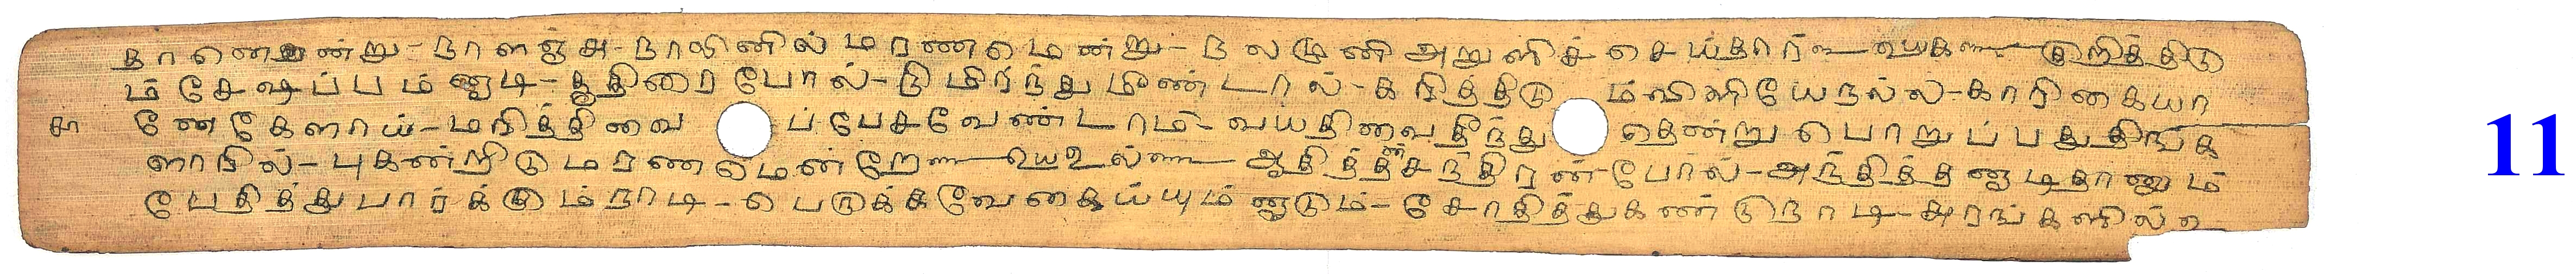 தானெஒன்று-நாளஞ்சு-நாவினில் மரணமென்று-நலமுனி அறுளிச் செய்தார் குறித்திடு
ம் சேஷப்பம் னாடி-குதிரை போல்-நிமிர்ந்து மீண்டால்-கரித்திடு ம் விளியே நல்ல-காரிகையா
ணே கேளாய்-மரித்திவை ப் பேசவேண்டாம்-வயதிவை தீந்து தென்று பொறுப்பது திங்க
ளாரில்-புகன்றிடு மரணமென்றே ஆதித்தசந்திரன்-போல்-அந்தித்த னாடிதானும்
பேதித்து பார்க்கும் நாடி-பெருக்கவே கைய்யும் னாடும்-சோதித்து கண்டு நாடி-சுரங்களில்
11